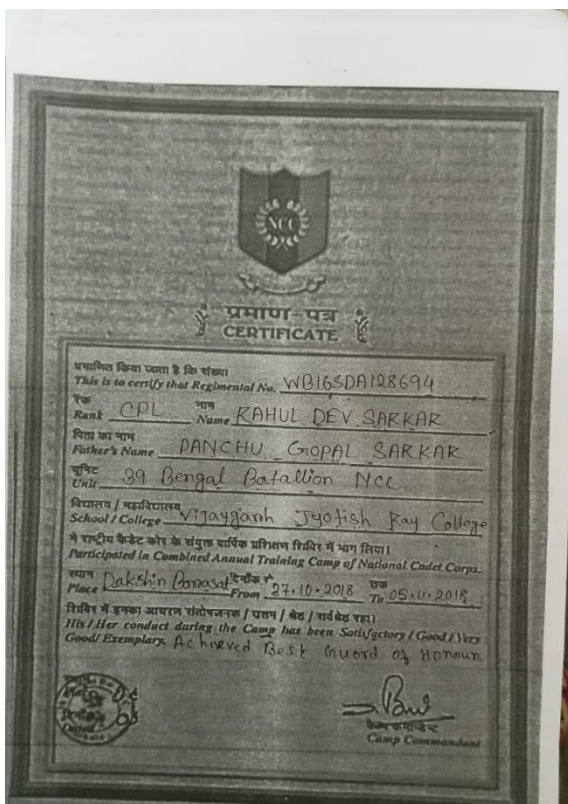 NCC
प्रमाण-पत्र
CERTIFICATE
प्रमाणित किया जाता है कि संख्या
This is to certify that Regimental No. WB16SDA128694
रैंक नाम
Rank CPL Name RAHUL DEV SARKAR
पिता का नाम
Father's Name PANCHU GOPAL SARKAR
यूनिट
Unit 39 Bengal Batallion NCC
विद्यालय / महाविद्यालय
School / College Vijaygarh Jyotish Ray College
ने राष्ट्रीय कैडेट कोर के संयुक्त वार्षिक प्रशिक्षण शिविर में भाग लिया।
Participated in Combined Annual Training Camp of National Cadet Corps.
स्थान दिनाँक से तक
Place Dakshin Barasat From 27.10.2018 To 05.11.2018
शिविर में इनका आचरण संतोषजनक / उत्तम / श्रेष्ठ / सर्वश्रेष्ठ रहा।
His / Her conduct during the Camp has been Satisfactory / Good / Very
Good / Exemplary. Achieved Best Guard of Honour
कैम्प कमान्डेन्ट
Camp Commandant